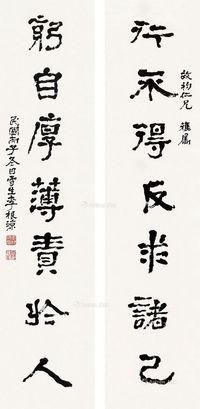 仁兄 雅屬
行不得反求諸己
躬自厚薄責於人
民國丙子冬日雪生李根源